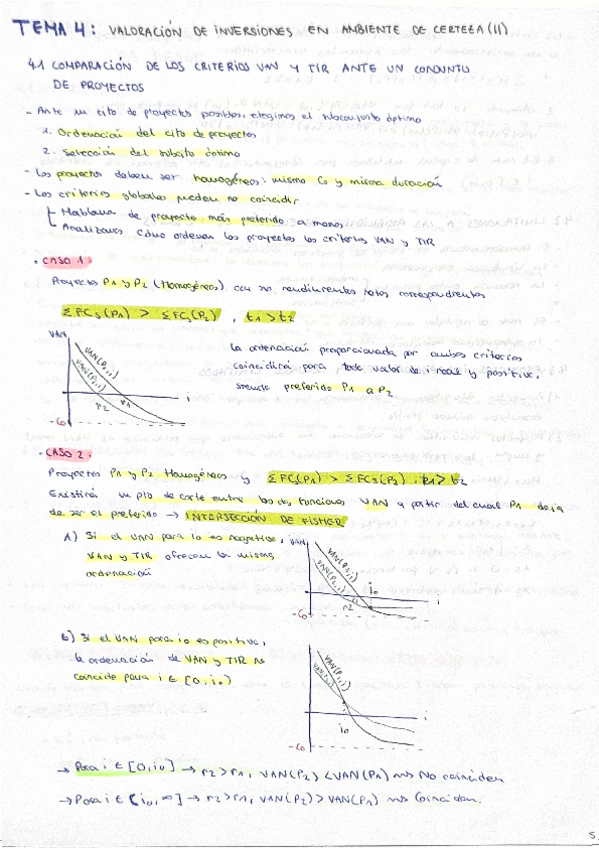 TEMA 4: VALORACIÓN DE INVERSIONES EN AMBIENTE DE CERTEZA (II)
4.1 COMPARACIÓN DE LOS CRITERIOS VAN Y TIR ANTE UN CONJUNTO
DE PROYECTOS
- Ante un cjto de proyectos posibles, elegimos el subconjunto óptimo
1. Ordenación del cjto de proyectos
2. Selección del subcjto óptimo
- Los proyectos deben ser homogéneos: mismo C0 y misma duración
- Los criterios globales pueden no coincidir
Hablamos de proyecto más preferido a menos
Analizamos cómo ordenan los proyectos los criterios VAN y TIR
· CASO 1:
Proyectos P1 y P2 (Homogéneos) con sus rendimientos netos correspondientes
ΣFCs(P1) > ΣFCs(P2), r1 > r2
VAN
VAN(P1,i)
VAN(P2,i)
r2 r1 i
-C0
La ordenación proporcionada por ambos criterios
coincidirá para todo valor de i real y positivo,
siendo preferido P1 a P2
· CASO 2:
Proyectos P1 y P2 Homogéneos y ΣFCs(P1) > ΣFCs(P2)
Existirá un pto de corte entre las dos funciones VAN a partir del cual P1 deja
de ser el preferido → INTERSECCIÓN DE FISHER
a) Si el VAN para i0 es negativo,
VAN y TIR ofrecen la misma
ordenación
VAN
VAN(P1,i)
VAN(P2,i)
r2 i0 i
-C0
b) Si el VAN para i0 es positivo,
la ordenación de VAN y TIR no
coincide para i ∈ [0, i0)
VAN(P1,i)
VAN(P2,i)
i0 i
-C0
→ Para i ∈ [0, i0] → r2 > r1, VAN(P2) < VAN(P1) ⇝ No coinciden
→ Para i ∈ [i0, ∞] → r2 > r1, VAN(P2) > VAN(P1) ⇝ Coinciden.
5